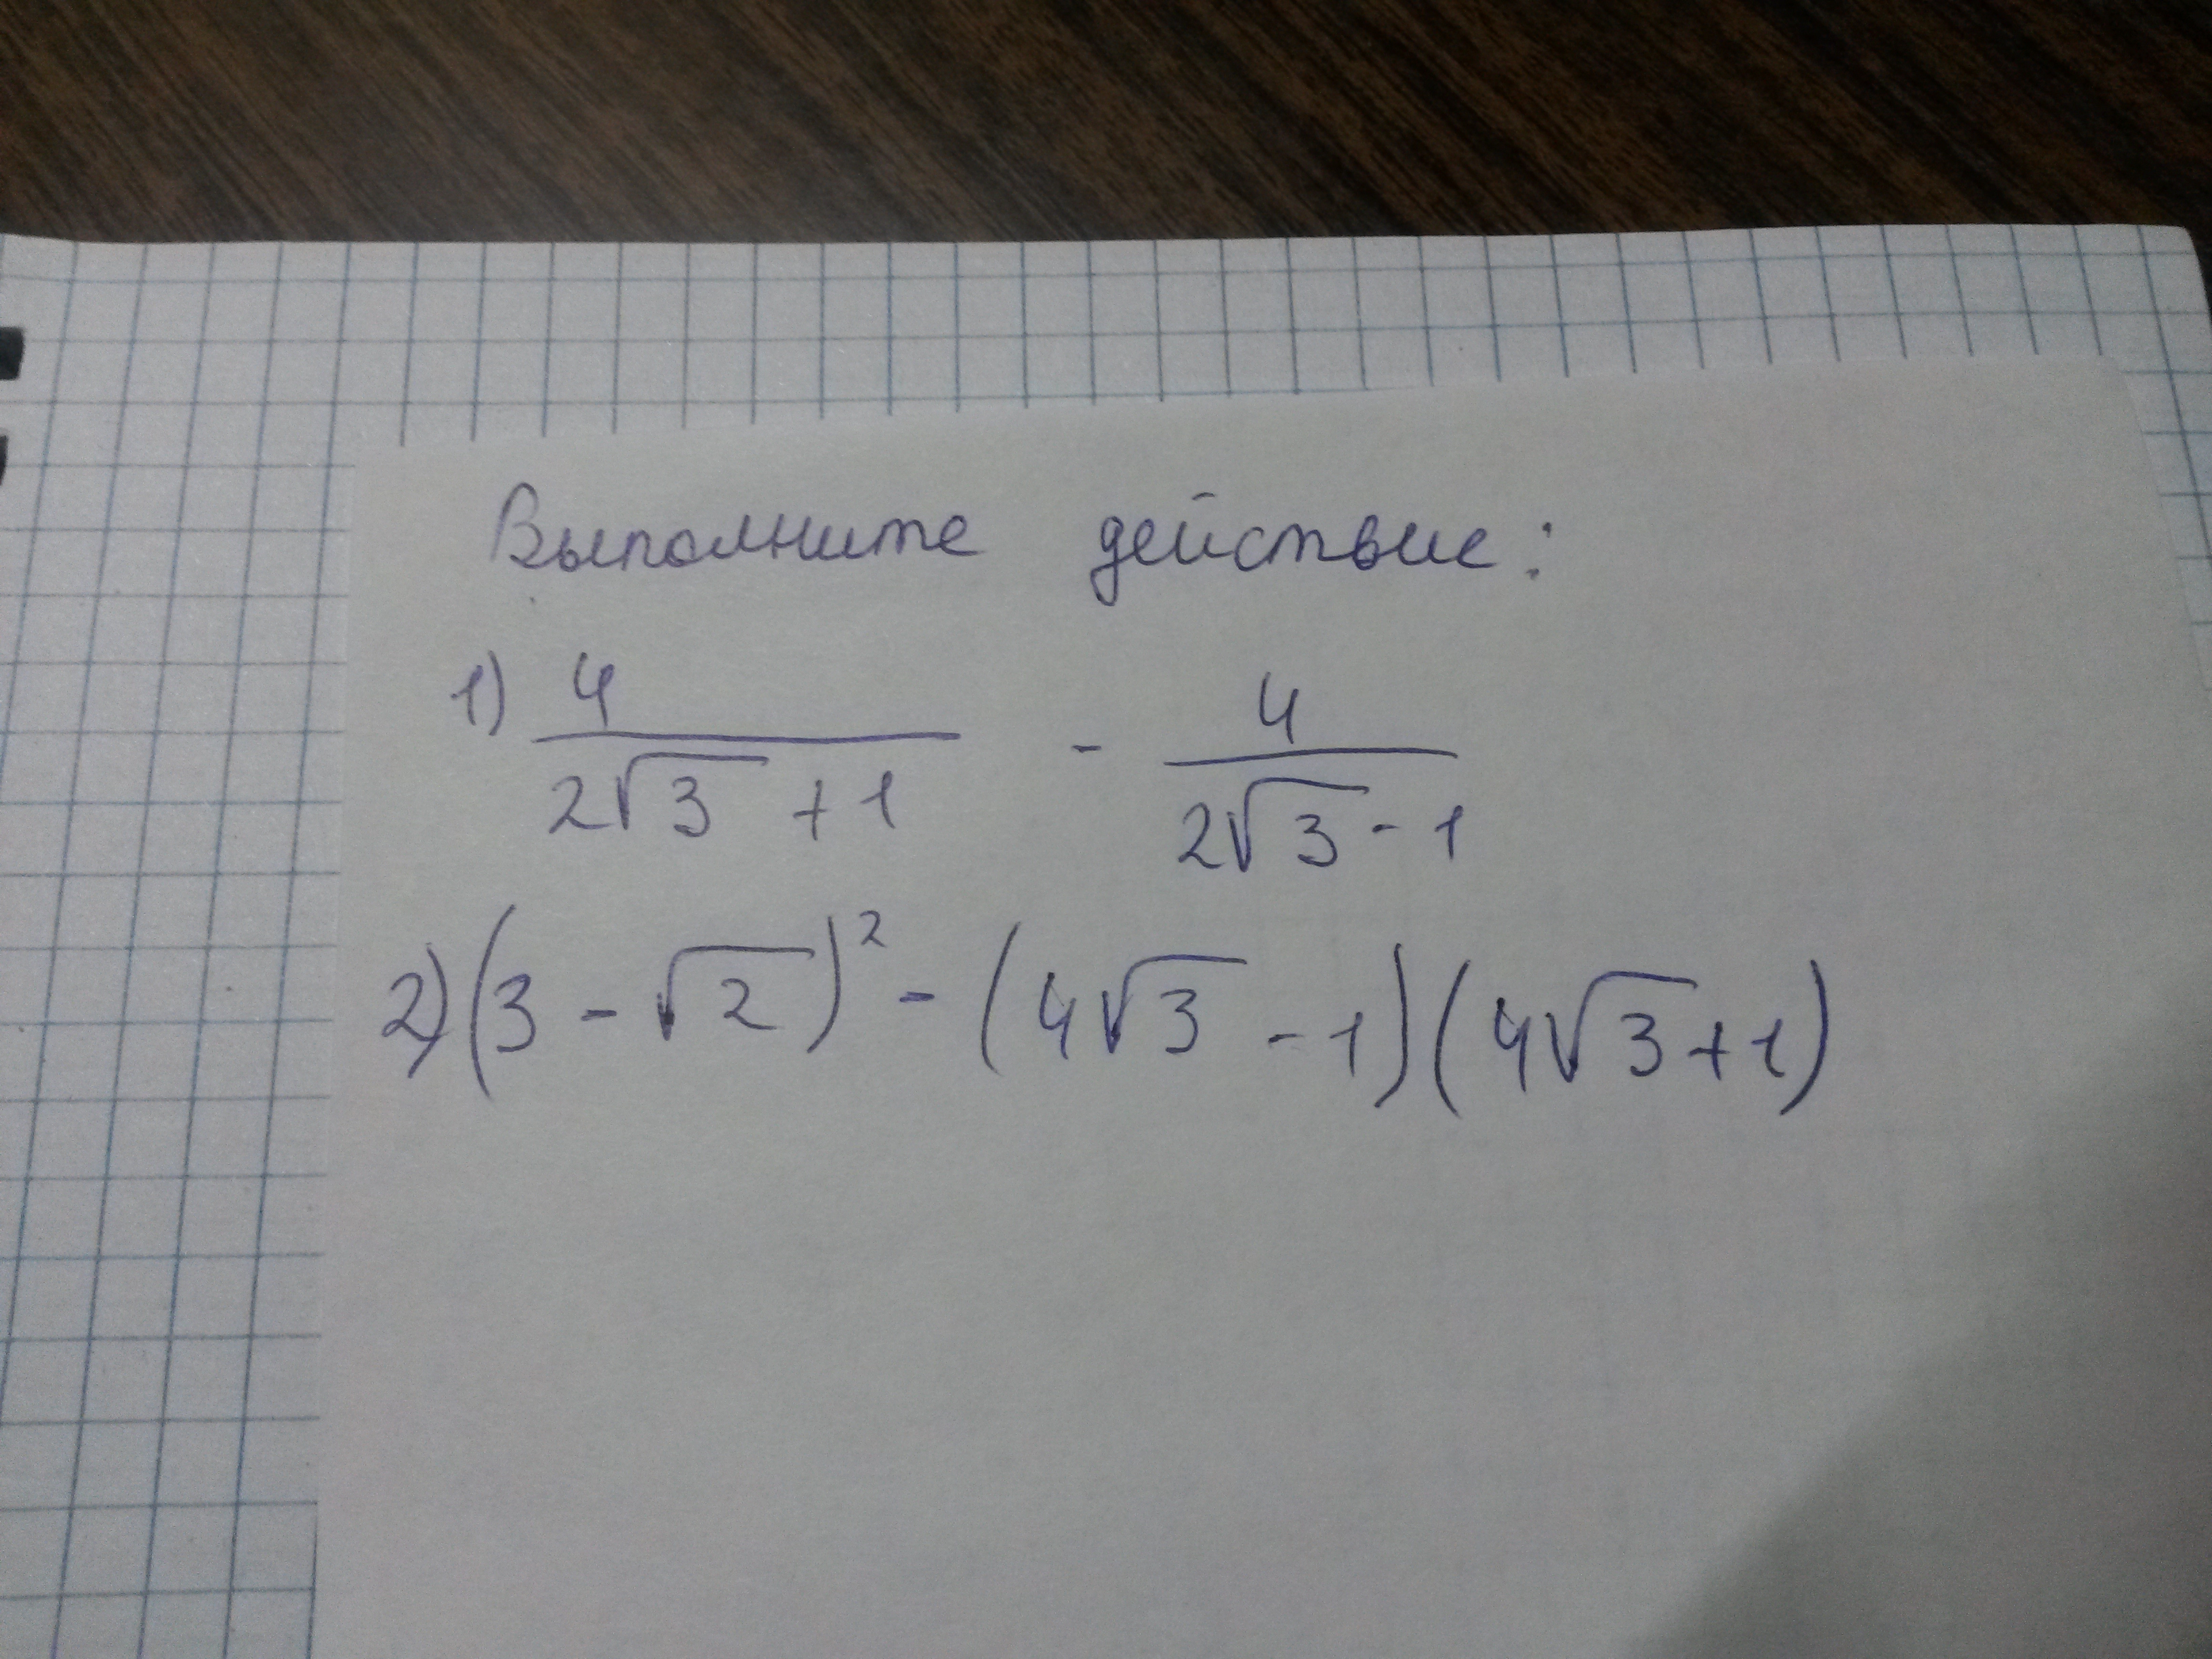 Выполните действие:
1) 4/(2√3 + 1) - 4/(2√3 - 1)
2) (3 - √2)² - (4√3 - 1)(4√3 + 1)